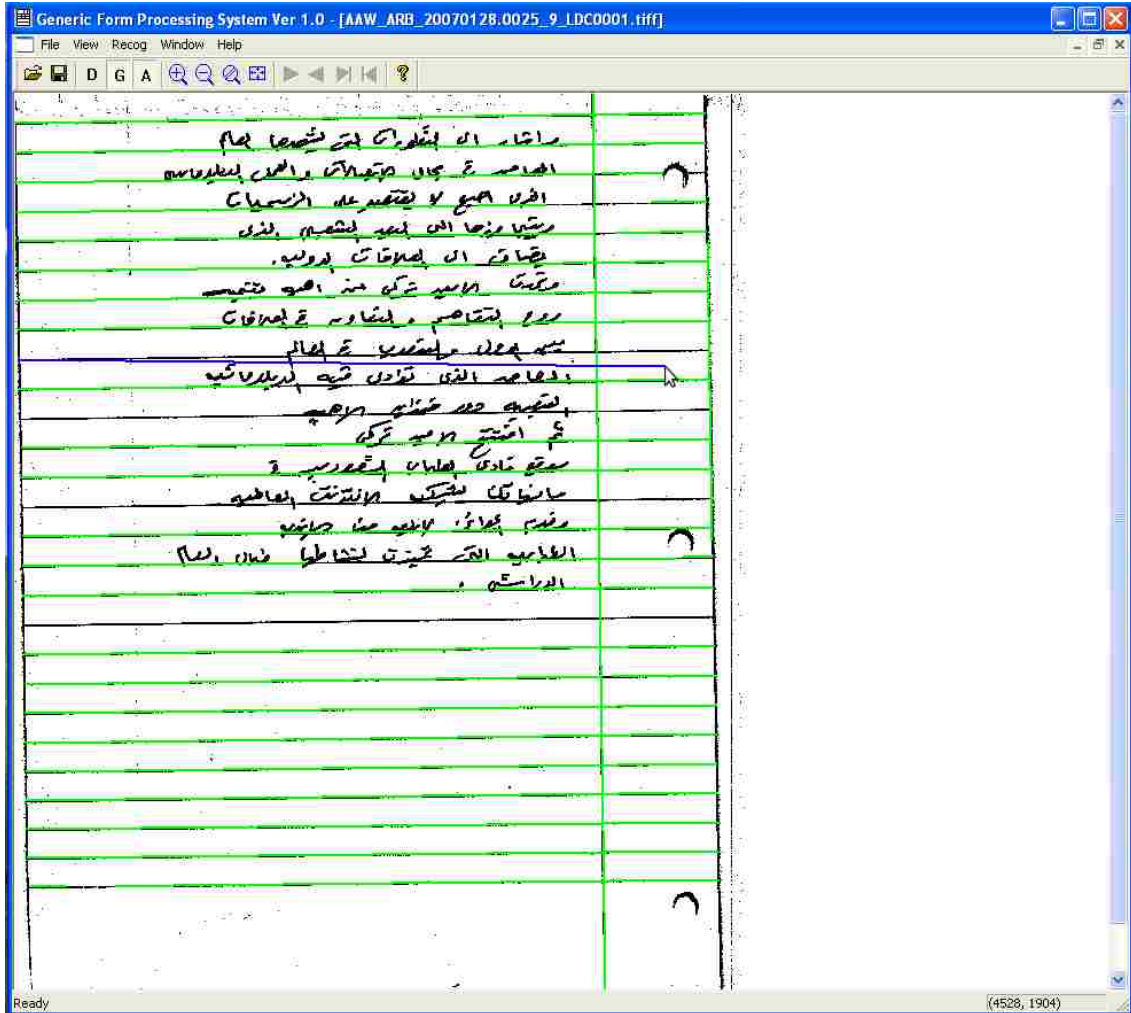 Generic Form Processing System Ver 1.0 - [AAW_ARB_20070128.0025_9_LDC0001.tiff]
File View Recog Window Help
D G A
واشار الى التطورات التي يشهدها العالم
المعاصر في مجال الاتصالات والعمل الدبلوماسي
الذي اصبح لا يقتصر على الرسميات
ويتجاوزها الى البعد الشعبي الذي
يضاف الى العلاقات الدولية.
وتحدث الامير تركي عن اهمية تنمية
روح التفاهم والتعاون في العلاقات
بين الدول والشعوب في العالم
المعاصر الذي تؤدي فيه الدبلوماسية
الشعبية دور متزايد الاهمية
ثم افتتح الامير تركي
موقع نادي الطلاب السعوديين في
مانهاتن بشبكة الانترنت العالمية
وقدم جوائز
الطلابية التي تميزت بنشاطها خلال العام
الدراسي .
Ready
(4528, 1904)